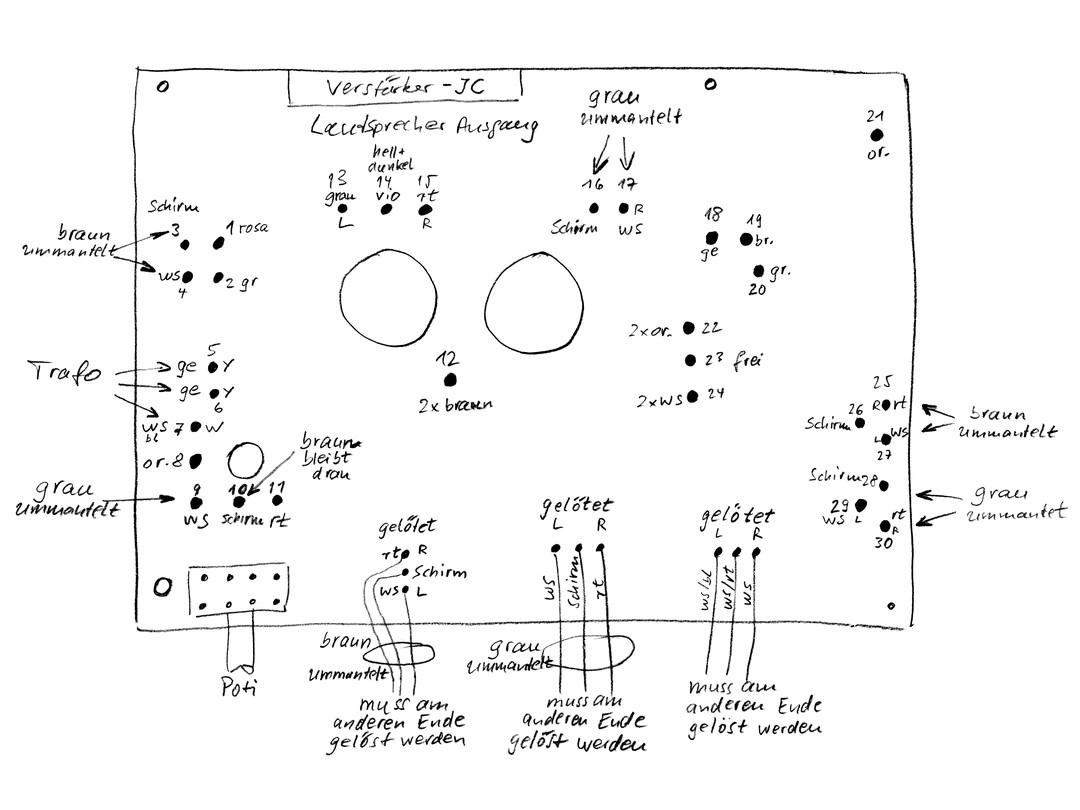 Verstärker-JC
Lautsprecher Ausgang
grau
ummantelt
21
or.
hell+
dunkel
13
14
15
grau
vio
rt
L
R
16
17
R
Schirm
ws
18
ge
19
br.
gr.
20
Schirm
3
1 rosa
braun
ummantelt
ws
4
2 gr
12
2x braun
2x or.
22
23 frei
2x ws
24
Trafo
5
ge
Y
ge
Y
6
ws
bl
7
W
or. 8
braun
bleibt
dran
grau
ummantelt
9
10
11
ws
Schirm
rt
25
R
rt
26
Schirm
L
ws
27
braun
ummantelt
Schirm 28
29
ws
L
rt
R
30
grau
ummantet
gelötet
rt
R
Schirm
ws
L
gelötet
L
R
ws
Schirm
rt
gelötet
L
R
ws/bl
ws/rt
ws
Poti
braun
ummantelt
muss am
anderen Ende
gelöst werden
grau
ummantelt
muss am
anderen Ende
gelöst werden
muss am
anderen Ende
gelöst werden